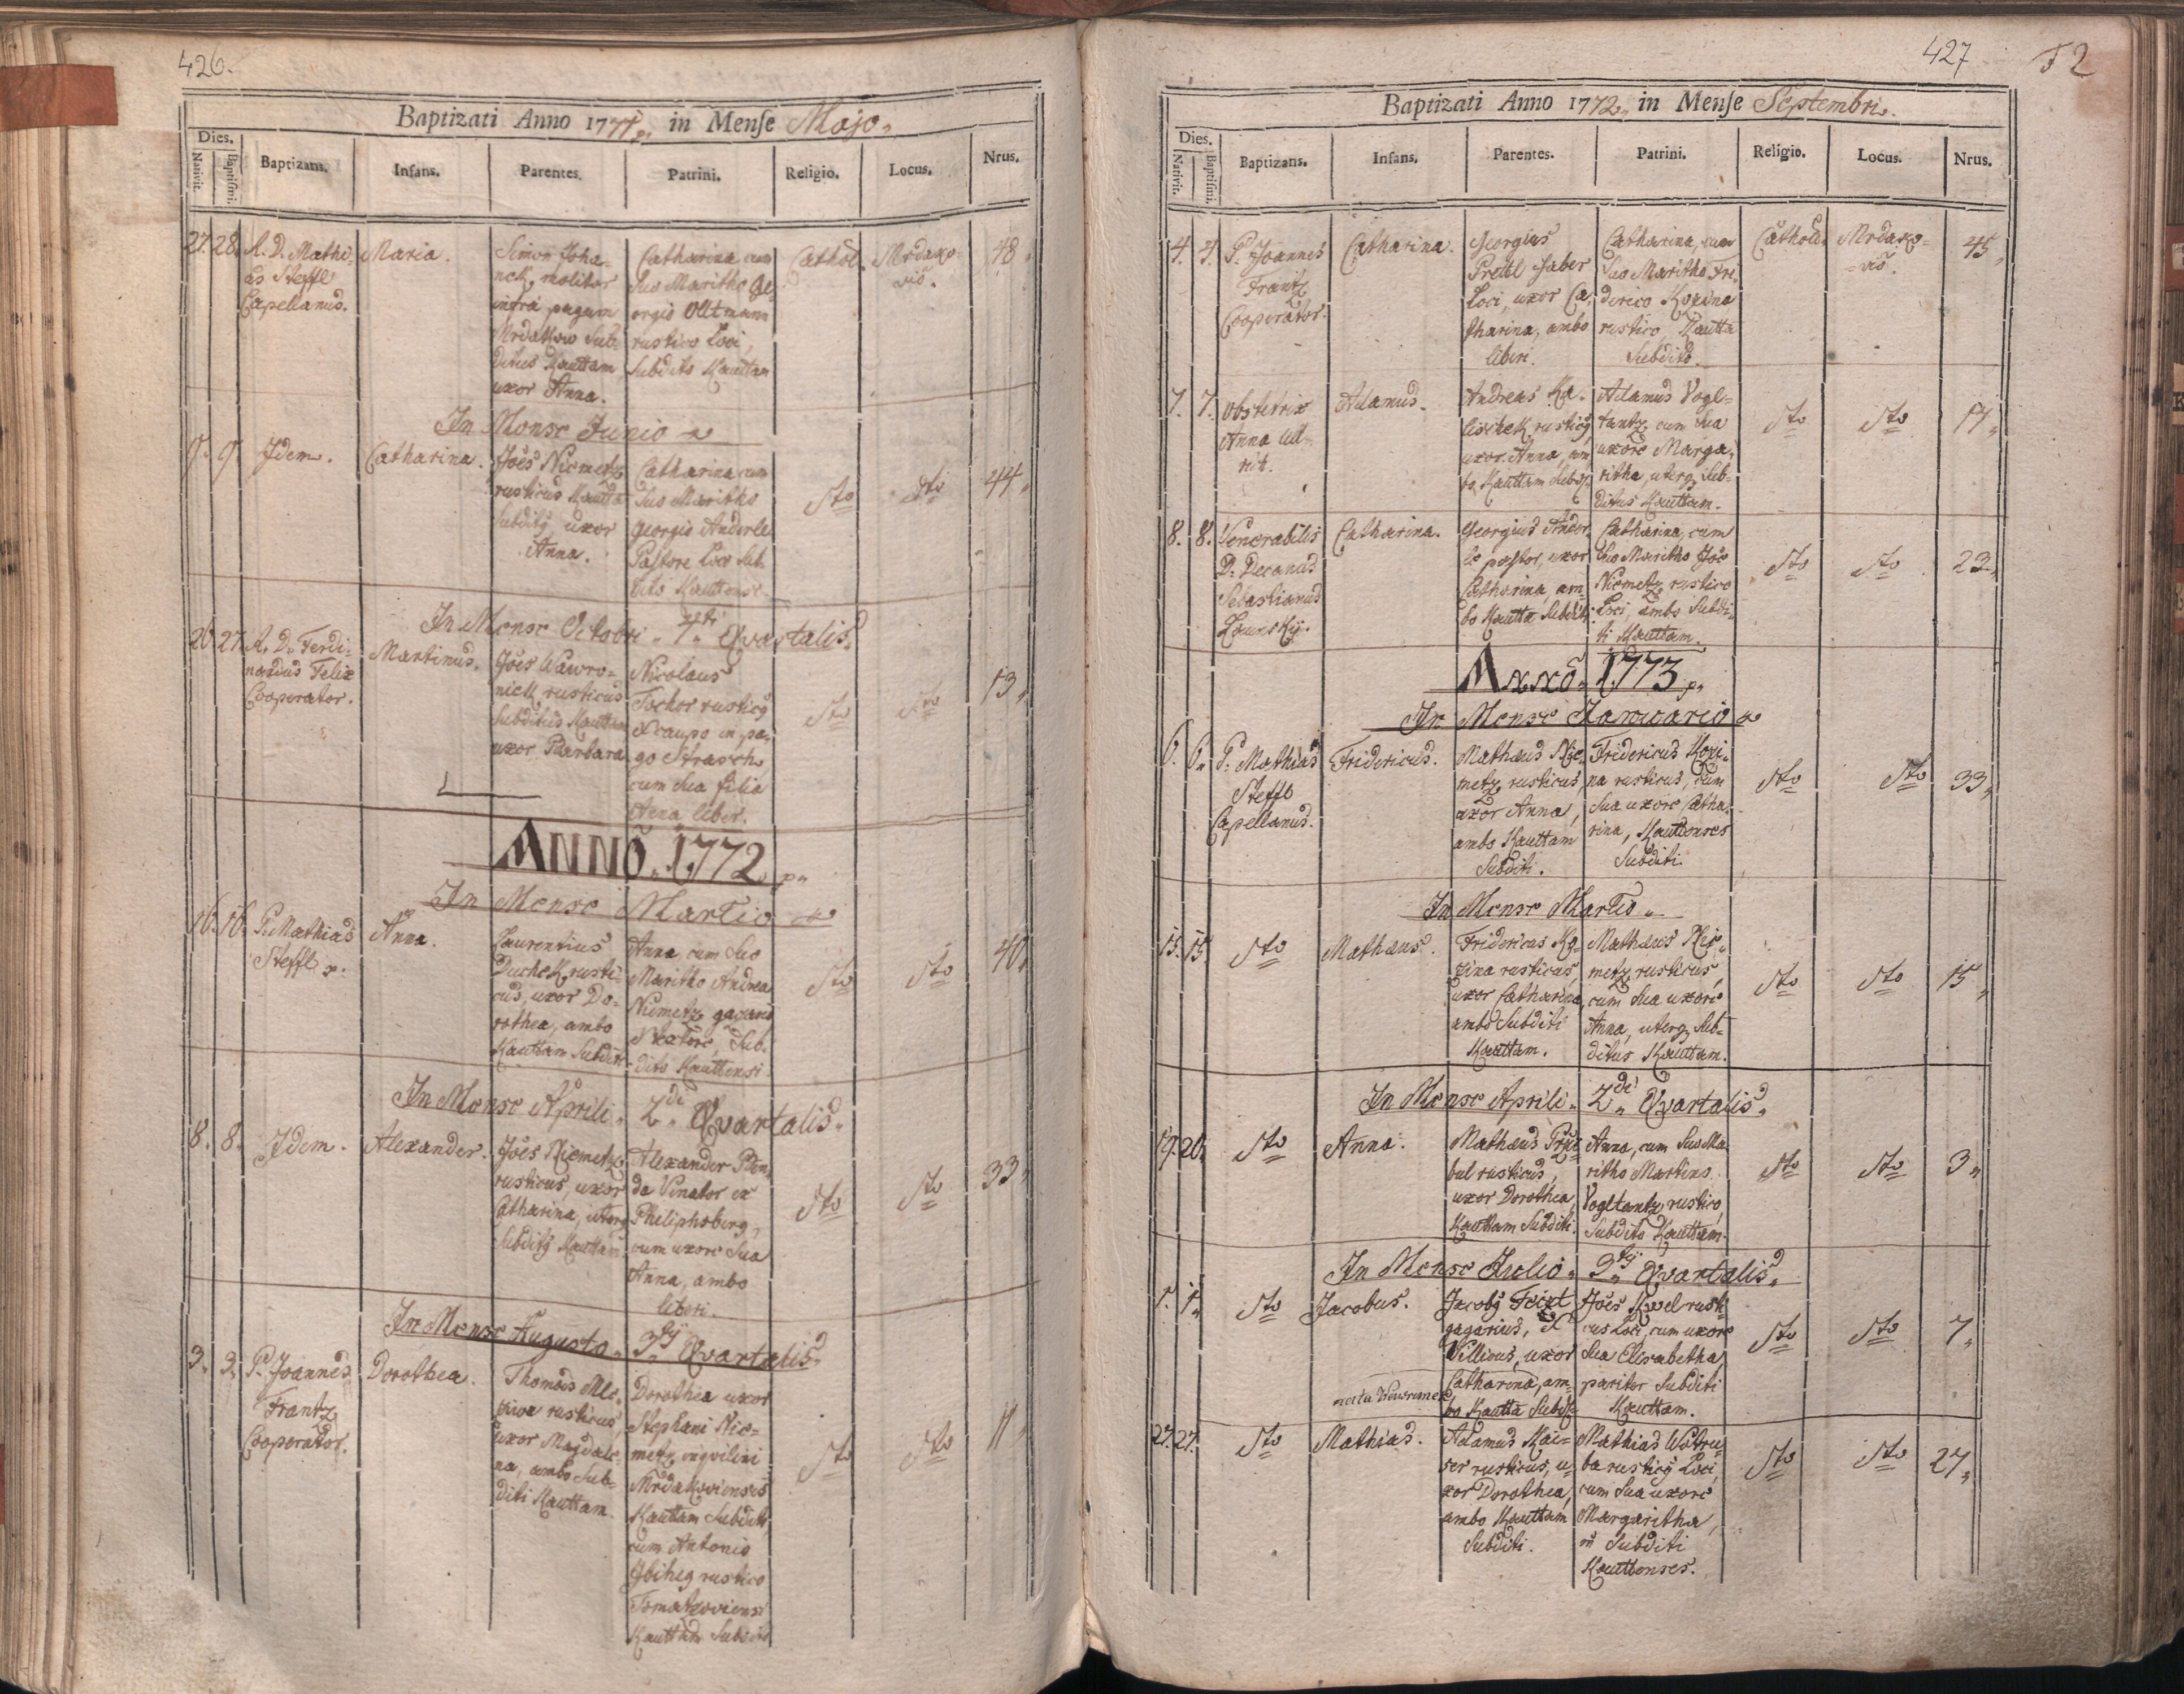 426.
Baptizati Anno 1771 in Mense Majo.
Dies.
Nativit. Baptismi. Baptizans. Infans. Parentes. Patrini. Religio. Locus. Nrus.
27. 28. A. D. Mathi-
as Steffl
Capellanus.
Maria.
Simon Joha-
nek molitor
infra pagum
Mrdakow Sub-
ditus Kauttam
uxor Anna.
Catharina cum
Suo Maritho Ge-
orgio Olltmann
rustico Loci,
Subdito Kauttam
Cathol.
Mrdako-
vis.
48
In Mense Junio
9. 9. Idem.
Catharina.
Jões Niemetz
rusticus Kautta
Subditq uxor
Anna.
Catharina cum
Suo Maritho
Georgio Anderle
Pastore Loci Sub-
dito Kauttensi
dto
dto
44
In Mense Octobri 4ti Qvartalis.
26 27. A. D. Ferdi-
nandus Felix
Cooperator.
Martinus.
Jões Wawro-
nick rusticus
Subditus Kauttam
uxor Barbara
Nicolaus
Tschor rusticq
& caupo in pa-
go Strasch
cum Sua filia
Anna liber.
dto
dto
13
ANNO 1772
In Mense Martio
16. 16. P. Mathias
Steffl
Anna.
Laurentius
Duchek rusti-
cus, uxor Do-
rothea, ambo
Kauttam Subditi
Anna cum Suo
Maritho Andrea
Niemetz
Sub-
dito Kauttensi
dto
dto
40
In Mense Aprili 2di Qvartalis.
8. 8. Idem.
Alexander.
Jões Niemetz
rusticus, uxor
Catharina, uterq
Subditq Kauttam
Alexander Ben-
da Venator ex
Philiphsberg,
cum uxore Sua
Anna, ambo
liberi.
dto
dto
33
In Mense Augusto 3tij Qvartalis.
3. 3. P. Joannes
Frantz
Cooperator.
Dorothea.
Thomas
rusticus,
uxor Magdale-
na, ambo Sub-
diti Kauttam.
Dorothea uxor
Stephani Nie-
metz inqvilini
Mrdakoviensis
Kauttam Subditi
cum Antonio
rustico
Kauttam Subdito
dto
dto
11
427 F2
Baptizati Anno 1772 in Mense Septembri.
Dies.
Nativit. Baptismi. Baptizans. Infans. Parentes. Patrini. Religio. Locus. Nrus.
4. 4. P. Joannes
Frantz
Cooperator.
Catharina.
Georgius
Faber
Loci, uxor Ca-
tharina, ambo
liberi.
Catharina, cum
Suo Maritho Fri-
derico Kozina
rustico Kautta
Subdito.
Cathol.
Mrdako-
vis.
45
7. 7. Obstetrix
Anna
Adamus.
Andreas Ka-
lischek rusticq
uxor Anna, am-
bo Kauttam Subd.
Adamus Vogl-
tantz cum Sua
uxore Marga-
ritha, uterq Sub-
ditus Kauttam.
dto
dto
17
8. 8. Venerabilis
D. Decanus
Sebastianus
Catharina.
Georgius Ander-
le pastor, uxor
Catharina, am-
bo Kautta Subditi
Catharina, cum
Suo Maritho Jõe
Niemetz rustico
Loci ambo Subdi-
ti Kauttam.
dto
dto
23
ANNO 1773
In Mense Januario
6. 6. P. Mathias
Steffl
Capellanus.
Fridericus.
Mathæus Nie-
metz rusticus,
uxor Anna,
ambo Kauttam
Subditi.
Fridericus Kozi-
na rusticus, cum
Sua uxore Catha-
rina, Kauttenses
Subditi.
dto
dto
33
In Mense Martio
15. 15. dto
Mathæus.
Fridericus Ko-
zina rusticus,
uxor Catharina,
ambo Subditi
Kauttam.
Mathæus Nie-
metz rusticus,
cum Sua uxore
Anna, uterq Sub-
ditus Kauttam.
dto
dto
15
In Mense Aprili 2di Qvartalis.
19. 20. dto
Anna.
Mathæus
bul rusticus,
uxor Dorothea,
Kauttam Subditi.
Anna, cum Suo Ma-
ritho Martino
Vogltantz, rustico,
Subdito Kauttam.
dto
dto
3
In Mense Julio 3tij Qvartalis.
1. 1. dto
Jacobus.
Jacobq Feixt
gazarius, &
Villicus, uxor
Catharina, am-
bo Kautta Subd.
Jões Kwel rusti-
cus Loci, cum uxore
Sua Elisabetha
pariter Subditi
Kauttam.
dto
dto
7
27. 27. dto
Mathias.
Adamus Kai-
ser rusticus, u-
xor Dorothea,
ambo Kauttam
Subditi.
Mathias Wotru-
ba rusticq Loci,
cum Sua uxore
Margaritha,
Subditi
Kauttenses.
dto
dto
27